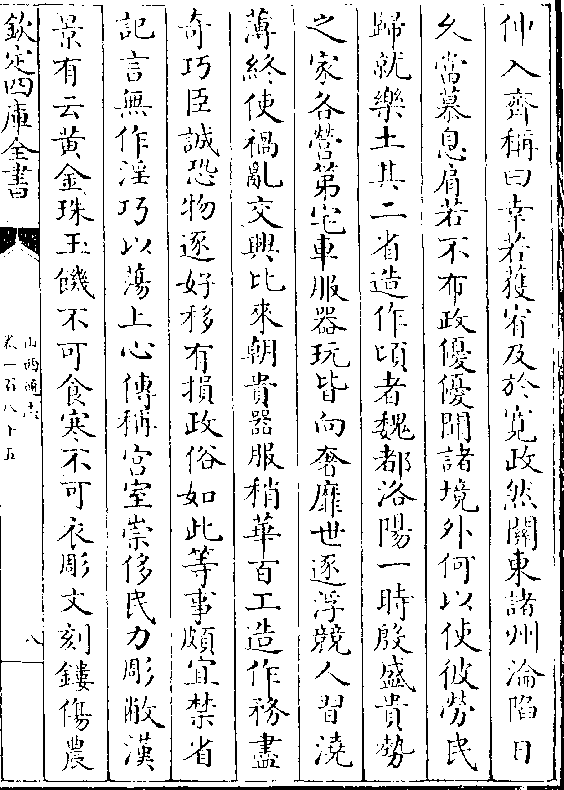 仲入齊稱曰幸若獲宥及於寛政然關東諸州淪陷日
乆當慕息肩若不布政優優聞諸境外何以使彼勞民
歸就樂土其二省造作頃者魏都洛陽一時殷盛貴勢
之家各營第宅車服器玩皆向奢靡世逐浮競人習澆
薄終使禍亂交興比來朝貴器服稍華百工造作務盡
奇巧臣誠恐物逐好移有損政俗如此等事頗宜禁省
記言無作淫巧以蕩上心傳稱宫室崇侈民力彫敝漢
景有云黄金珠玉饑不可食寒不可衣彫文刻鏤傷農
欽定四庫全書
山西通志
卷一百八十五
八